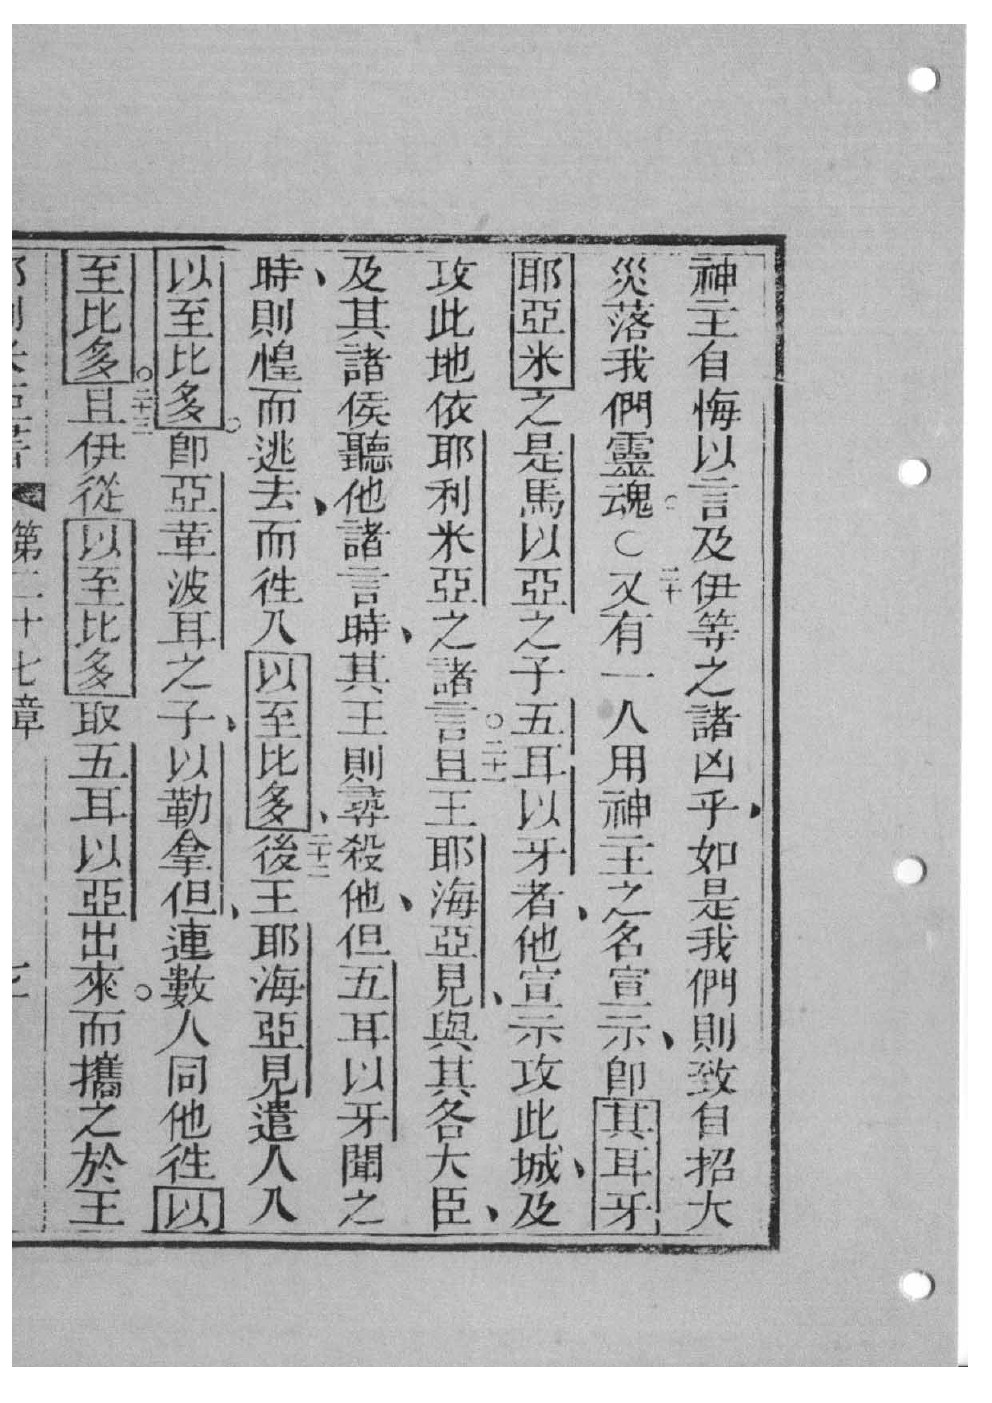 神主自悔以言及伊等之諸凶乎、如是我們則致自招大
災落我們靈魂○二十又有一人用神主之名宣示、卽其耳牙
耶亞米之是馬以亞之子五耳以牙者、他宣示攻此城、及
攻此地依耶利米亞之諸言○二十一且王耶海亞見、與其各大臣、
及其諸侯聽他諸言時、其王則尋殺他、但五耳以牙聞之
時、則惶而逃去、而徃入以至比多、二十二後王耶海亞見遣人入
以至比多。卽亞革波耳之子、以勒拿但、連數人同他徃以
至比多○二十三且伊從以至比多取五耳以亞出來。而攜之於王
耶利米亞書 第二十七章 七